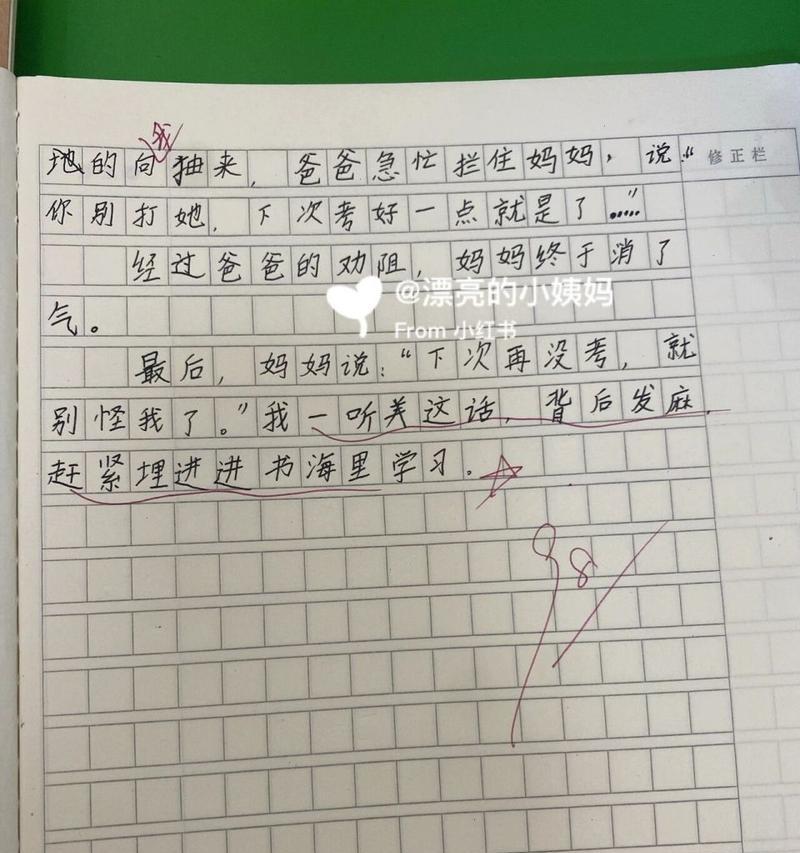 地的向我抽来，爸爸急忙拦住妈妈，说“
修正栏
你别打她，下次考好一点就是了……”
经过爸爸的劝阻，妈妈终于消了
气。
@漂亮的小姨妈
From 小红书
最后，妈妈说：“下次再没考，就
别怪我了。”我一听关这话，背后发麻，
赶紧埋进进书海里学习。
98